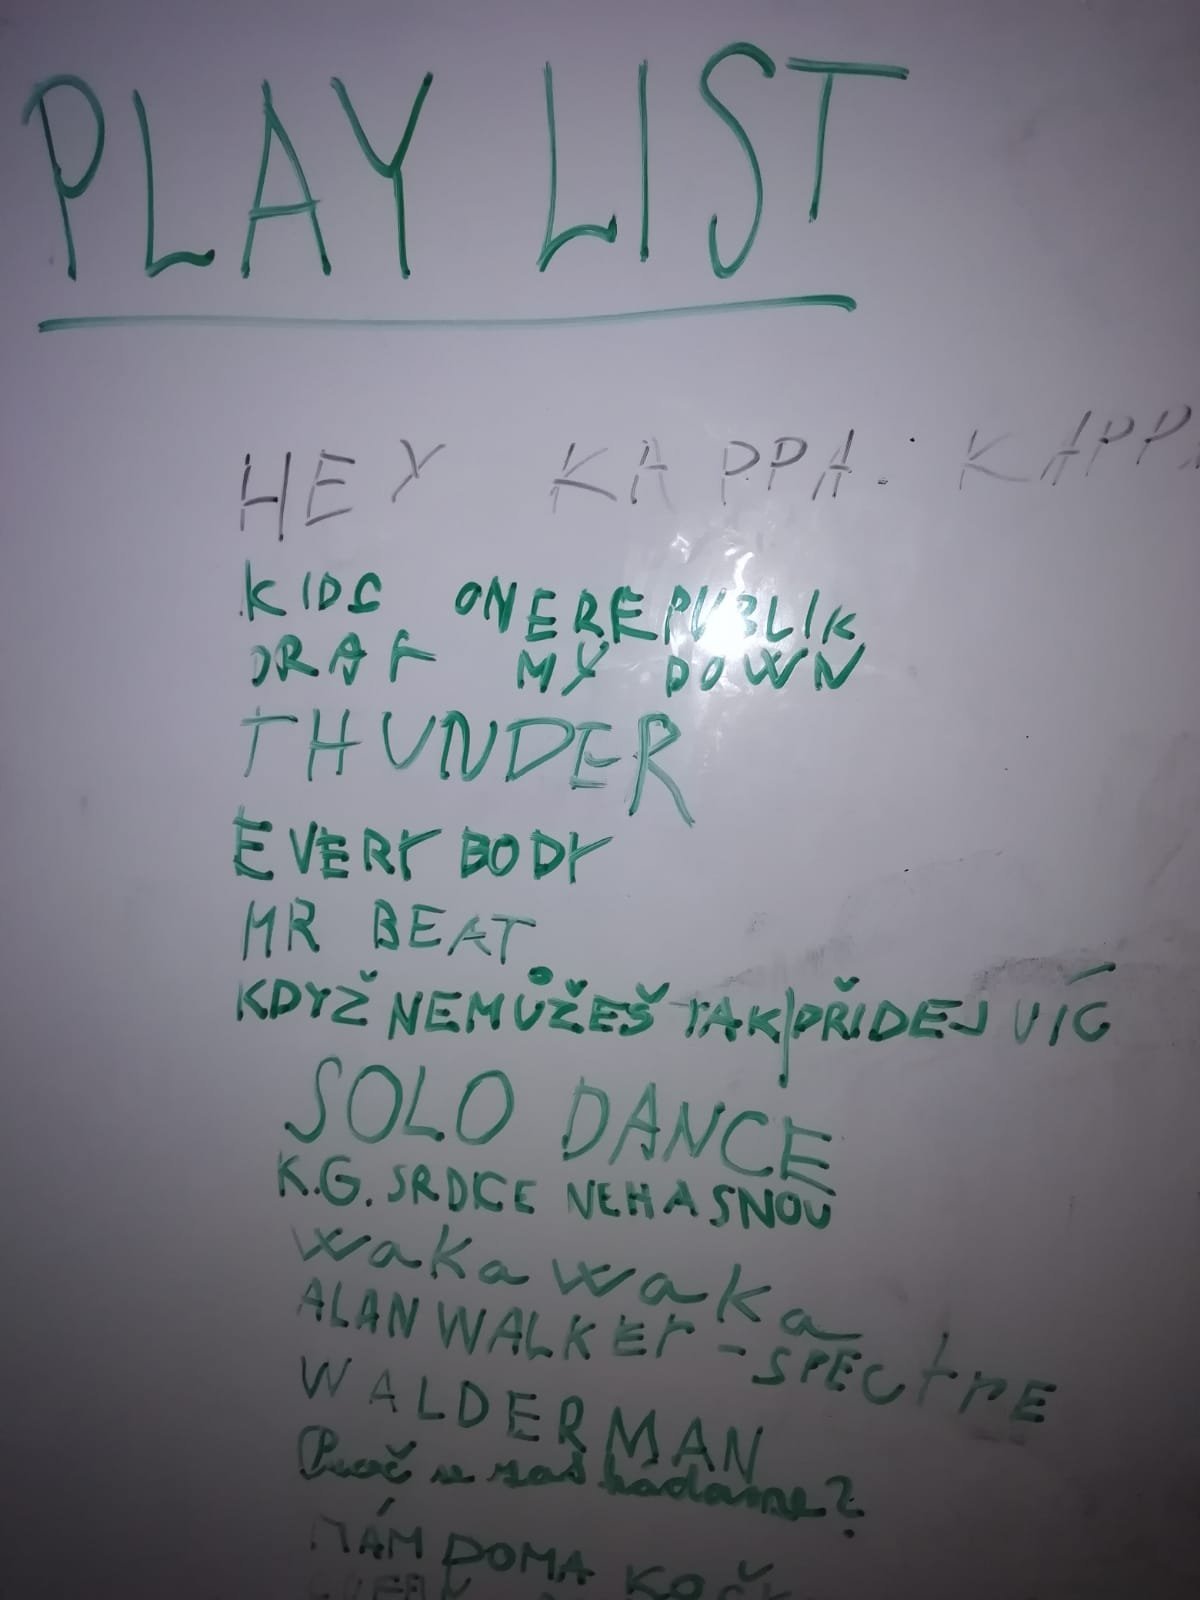 PLAY LIST
HEY KAPPA. KAPPA
KIDS ONEREPUBLIK
DRAF MY DOWN
THUNDER
EVERY BODY
MR BEAT
KDYŽ NEMŮŽEŠ TAK PŘIDEJ VÍC
SOLO DANCE
K.G. SRDCE NEHASNOU
waka waka
ALAN WALKER - SPECTRE
WALDERMAN
Proč se zas hádáme?
MÁM DOMA